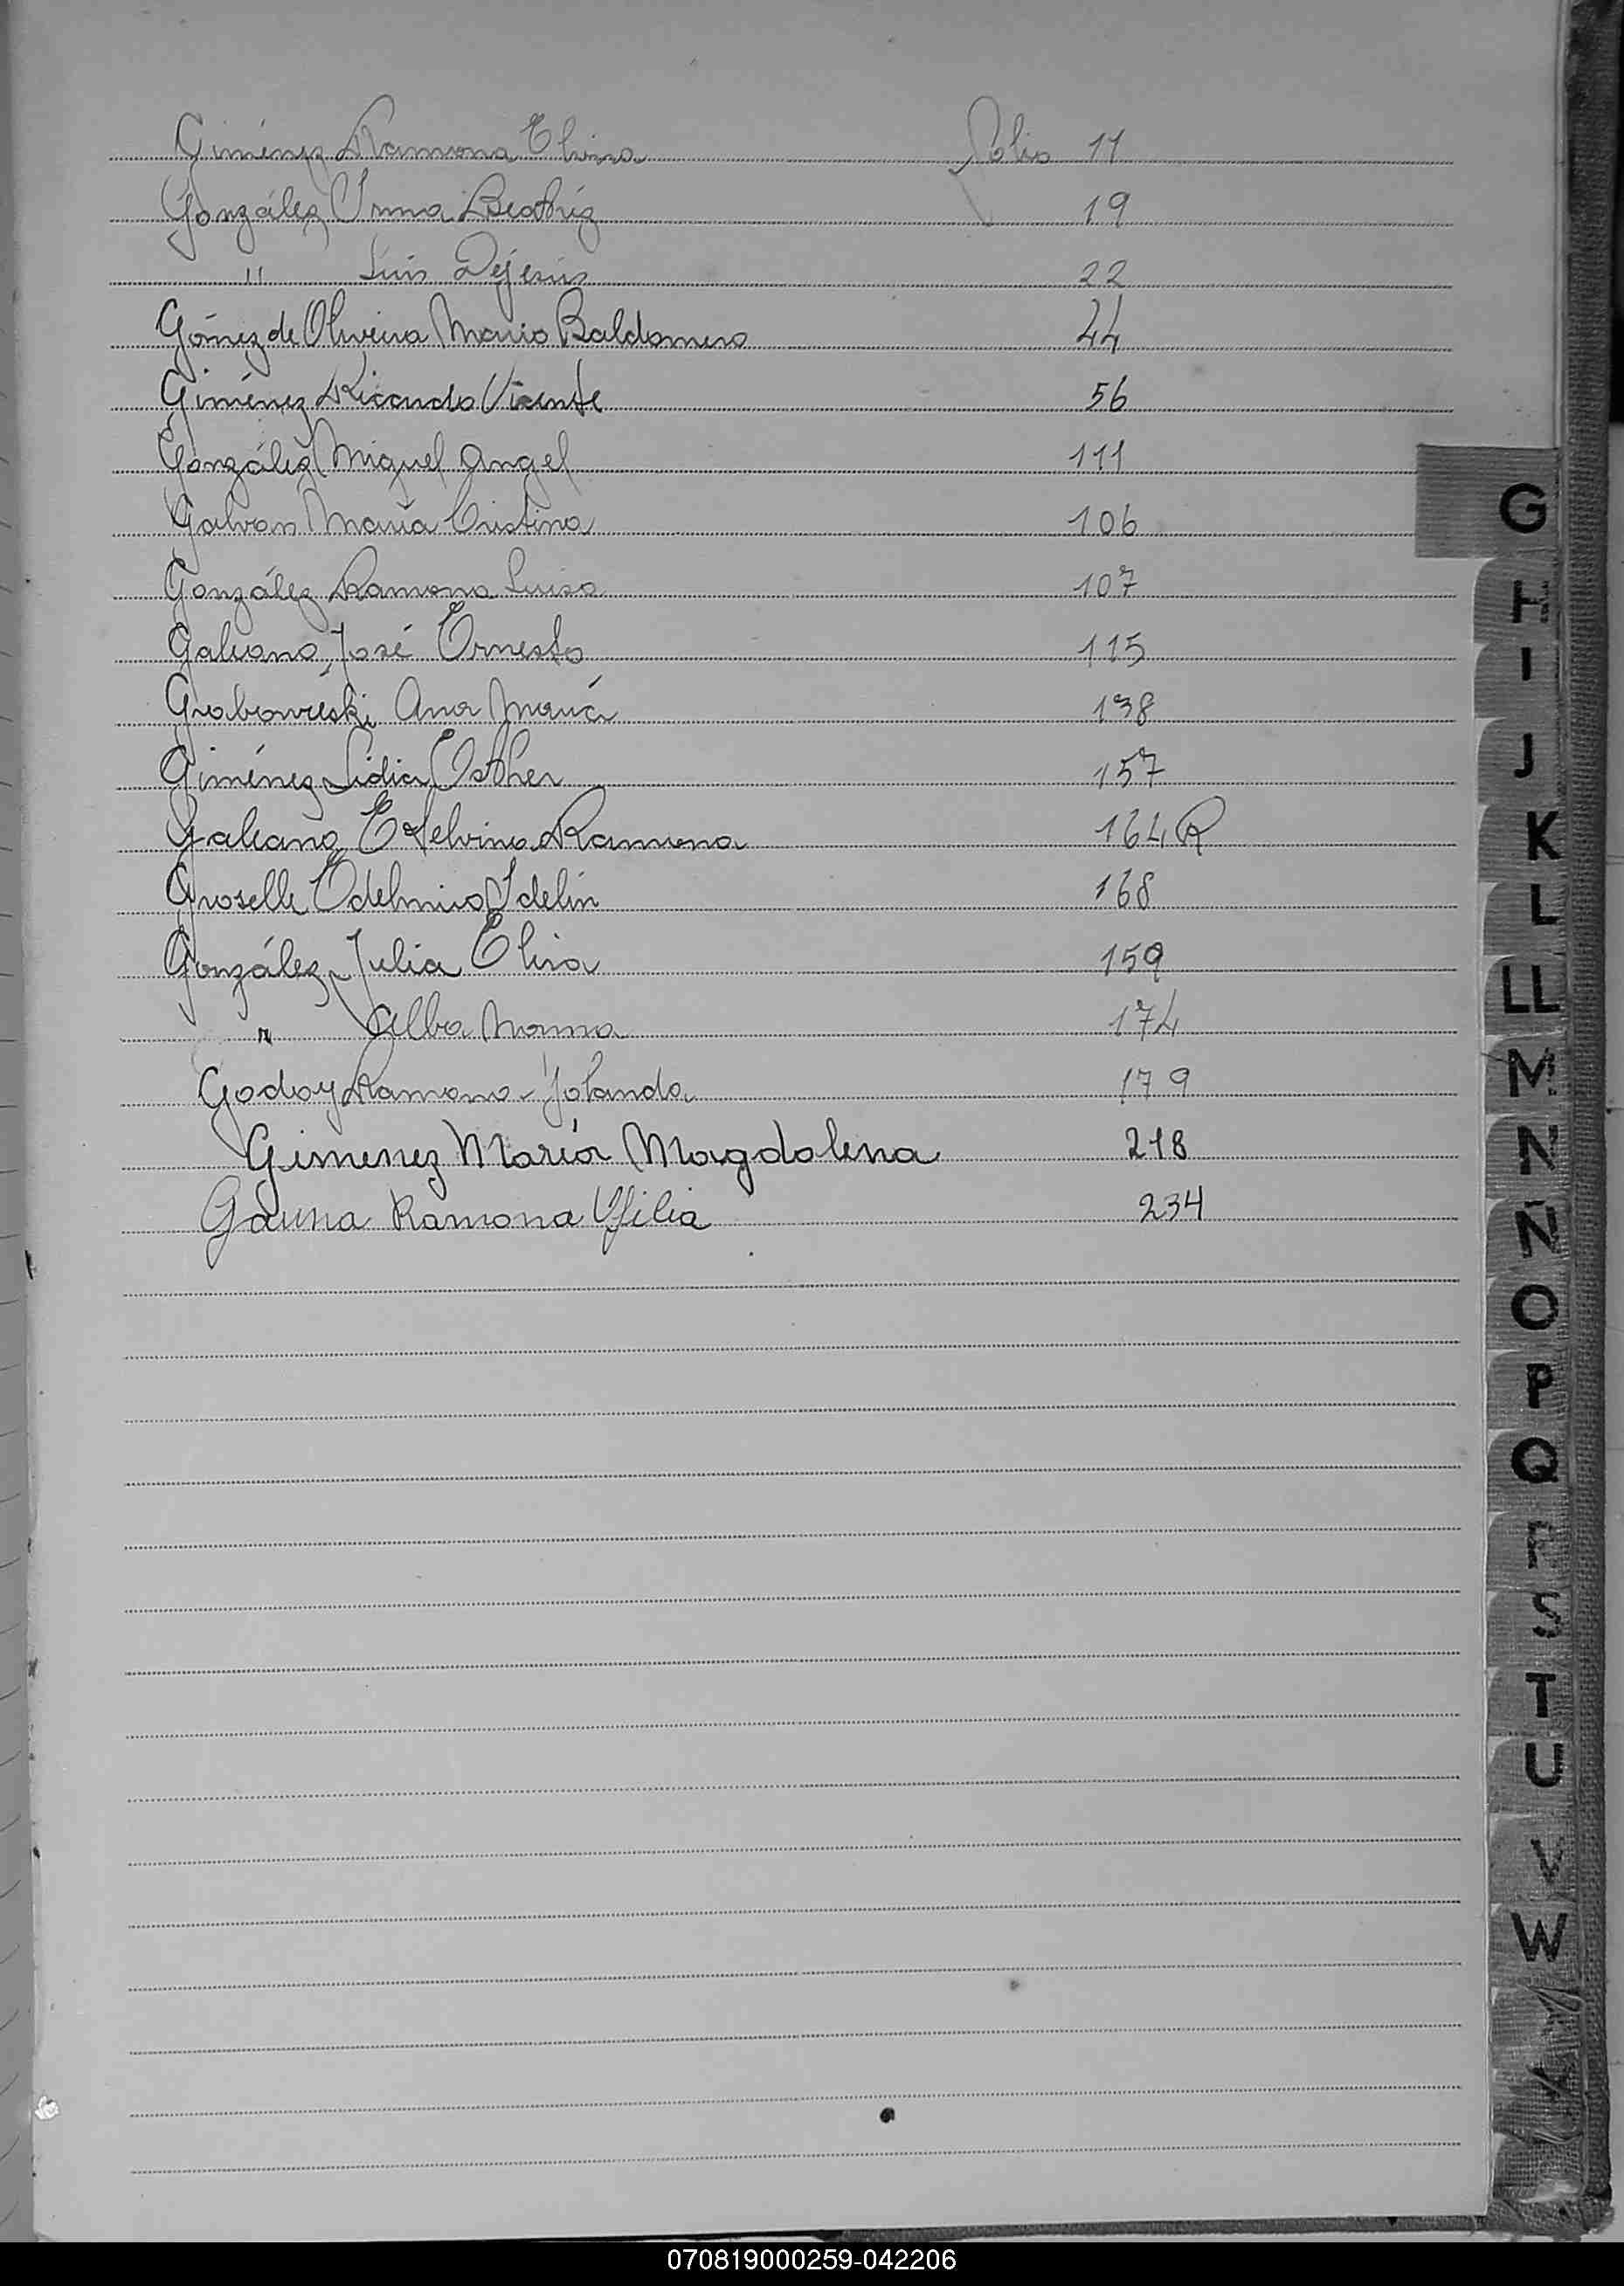 Giménez Ramona Elvira Folio 11
González Irma Beatríz 19
" Luis Dejesús 22
Gómez de Oliveira Mario Baldomero 44
Giménez Ricardo Vicente 56
González Miguel Angel 111
Galvan María Cristina 106
González Ramona Luisa 107
Galeano, José Ernesto 115
Grabowieski Ana María 138
Giménez Lidia Esther 157
Galeano, Etelvina Ramona 164 R
Groselle Edelmiro Idelin 168
González, Julia Elisa 159
" Alba Norma 174
Godoy Ramona Yolanda 179
Gimenez María Magdalena 218
Gauna Ramona 234
G
H
I
J
K
L
LL
M
N
Ñ
O
P
Q
R
S
T
U
V
W
070819000259-042206